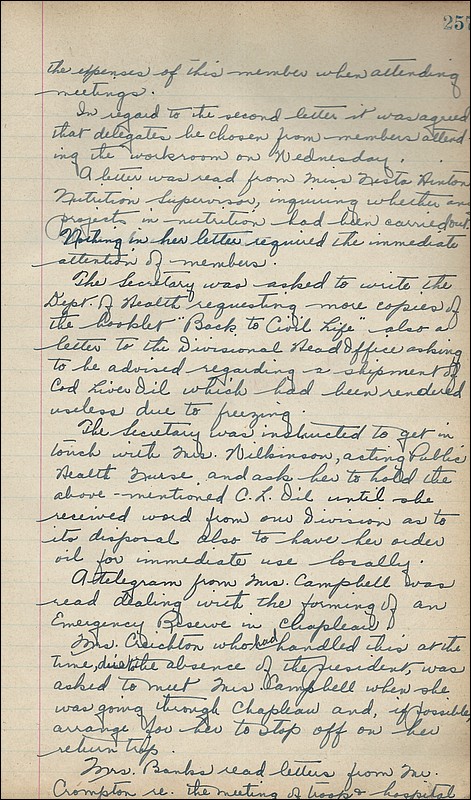 257
the expenses of this member when attending
meetings.
In regard to the second letter it was agreed
that delegates be chosen from members attend-
ing the workroom on Wednesday.
A letter was read from Miss Hinton
Nutrition Supervisor, inquiring whether any
projects in nutrition had been carried out.
Nothing in her letter required the immediate
attention of members.
The Secretary was asked to write the
Dept. of Health requesting more copies of
the booklet "Back to Civil Life" also a
letter to the Divisional Head Office asking
to be advised regarding a shipment of
Cod Liver Oil which had been rendered
useless due to freezing.
The Secretary was instructed to get in
touch with Mrs. Wilkinson, acting Public
Health Nurse and ask her to hold the
above-mentioned C. L. Oil until she
received word from our Division as to
its disposal also to have her order
oil for immediate use locally.
A telegram from Mrs. Campbell was
read dealing with the forming of an
Emergency Reserve in Chapleau.
Mrs. Creighton who had handled this at the
time, due to the absence of the President, was
asked to meet Mrs. Campbell when she
was going through Chapleau and, if possible,
arrange for her to stop off on her
return trip.
Mrs. Banks read letters from Mr.
Crompton re. the meeting of troop & hospital